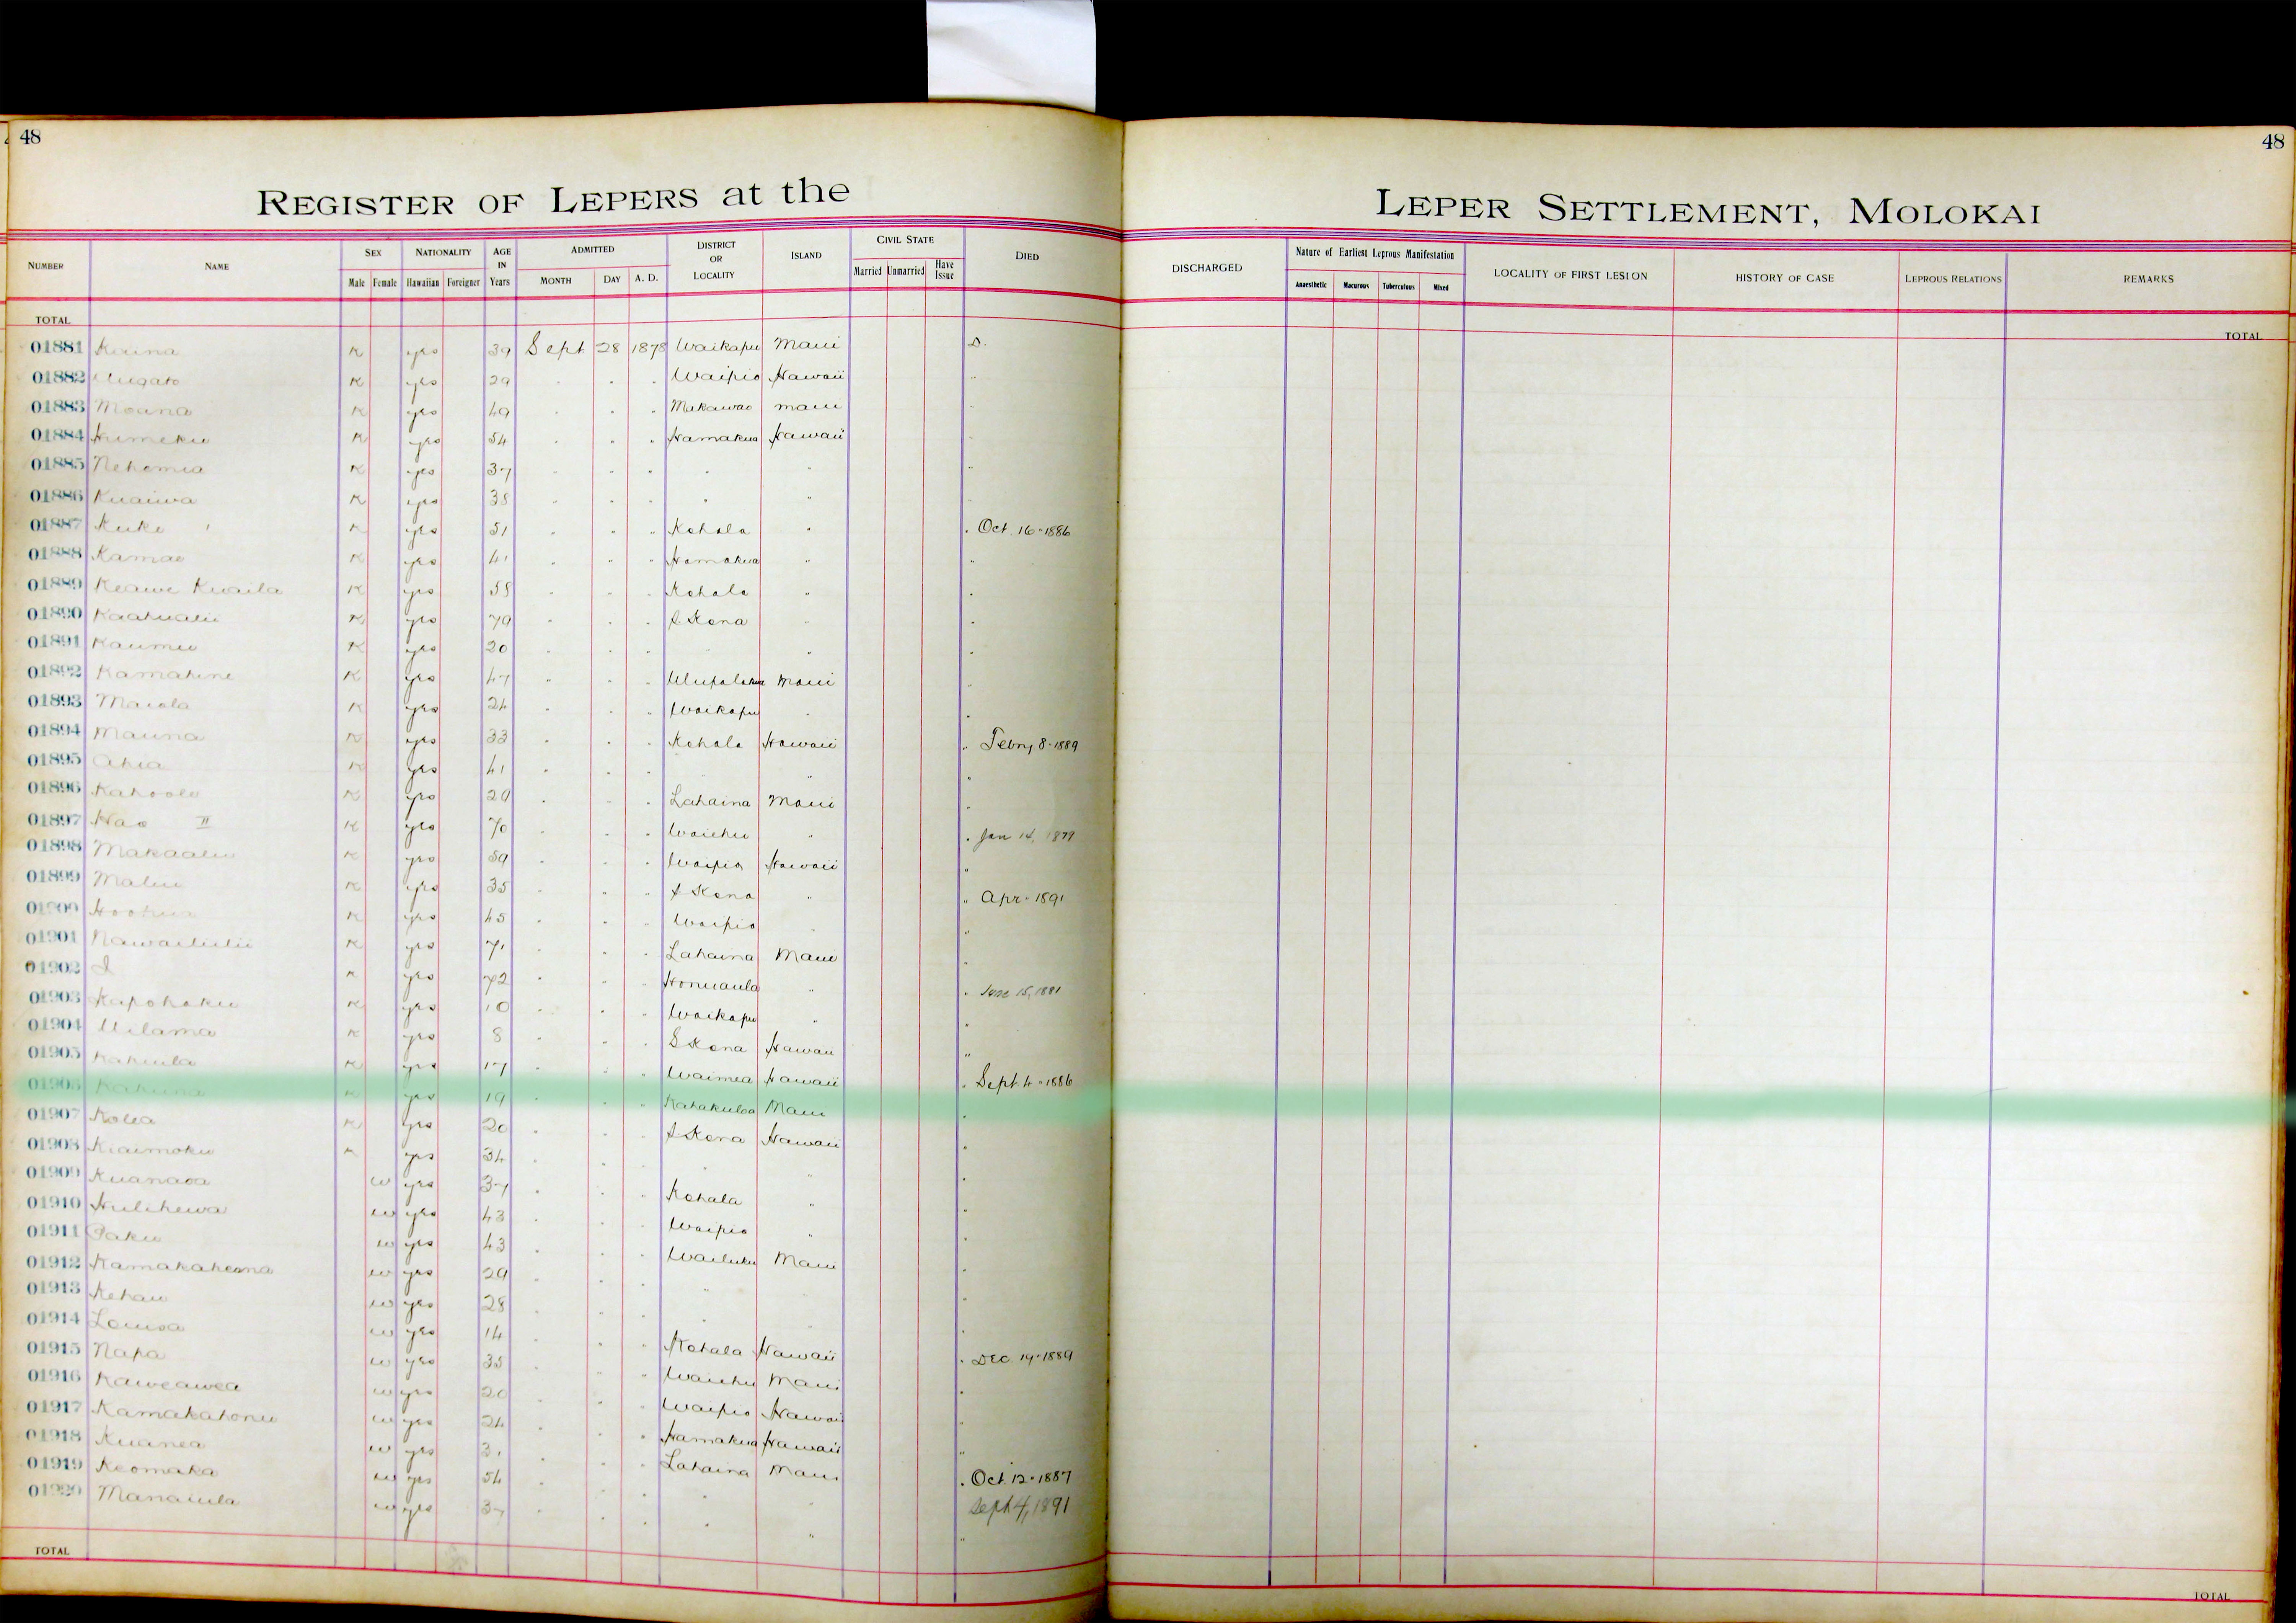 48
48
REGISTER OF LEPERS at the
LEPER SETTLEMENT, MOLOKAI
NUMBER NAME SEX NATIONALITY AGE IN Years ADMITTED DISTRICT OR LOCALITY ISLAND CIVIL STATE DIED DISCHARGED Nature of Earliest Leprous Manifestation LOCALITY OF FIRST LESION HISTORY OF CASE LEPROUS RELATIONS REMARKS
Male Female Hawaiian Foreigner MONTH DAY A. D. Married Unmarried Have Issue Anaesthetic Macurous Tuberculous Mixed
TOTAL TOTAL
01881 K yes 39 Sept 28 1878 Waikapu Maui D.
01882 K yes 29 " " " Waipio Hawaii "
01883 Moana K yes 49 " " " Makawao Maui "
01884 Humeku K yes 54 " " " Hamakua Hawaii "
01885 Nehemia K yes 37 " " " " " "
01886 Kuaiwa K yes 38 " " " " " "
01887 Kuke K yes 51 " " " Kohala " " Oct. 16-1886
01888 Kamae K yes 41 " " " Hamakua " "
01889 Keawe Kuaila K yes 58 " " " Kohala " "
01890 Kaahualii K yes 79 " " " S Kona " "
01891 Kaumu K yes 20 " " " " " "
01892 Kamahine K yes 47 " " " Ulupalakua Maui "
01893 Maiola K yes 24 " " " Waikapu " "
01894 Mauna K yes 33 " " " Kohala Hawaii " Febry 8-1889
01895 Ahia K yes 41 " " " " " "
01896 Kahoole K yes 29 " " " Lahaina Maui "
01897 Hao II K yes 70 " " " Waiehu " " Jan 14, 1879
01898 Makaalu K yes 59 " " " Waipio Hawaii "
01899 Malu K yes 35 " " " S Kona " " Apr. 1891
01900 Hoohua K yes 45 " " " Waipio " "
01901 Nawailulii K yes 71 " " " Lahaina Maui "
01902 I K yes 72 " " " Honuaula " " June 15, 1881
01903 Kapohaku K yes 10 " " " Waikapu " "
01904 Uilama K yes 8 " " " S Kona Hawaii "
01905 Kahuila K yes 17 " " " Waimea Hawaii " Sept 4-1886
01906 Kahuna K yes 19 " " " Kahakuloa Maui "
01907 Kolea K yes 20 " " " S Kona Hawaii "
01908 Kiaimoku K yes 34 " " " " " "
01909 Kuanaoa w yes 37 " " " Kohala " "
01910 Hulihewa w yes 43 " " " Waipio " "
01911 Paku w yes 43 " " " Wailuku Maui "
01912 w yes 29 " " " " " "
01913 Kehau w yes 28 " " " " " "
01914 Louisa w yes 14 " " " Kohala Hawaii " Dec. 19-1889
01915 Napa w yes 35 " " " Waiehu Maui "
01916 Kaweawea w yes 20 " " " Waipio Hawaii "
01917 Kamakahonu w yes 24 " " " Hamakua Hawaii "
01918 Kuanea w yes 31 " " " Lahaina Maui " Oct 12-1887
01919 Keomaka w yes 54 " " " " " Sept 4, 1891
01920 Manaiula w yes 37 " " " " " "
TOTAL TOTAL